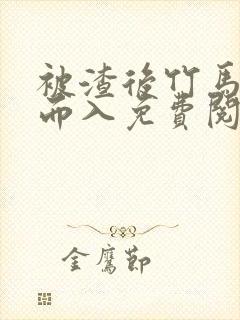 被渣後竹馬
而入免費閱
金鷹節